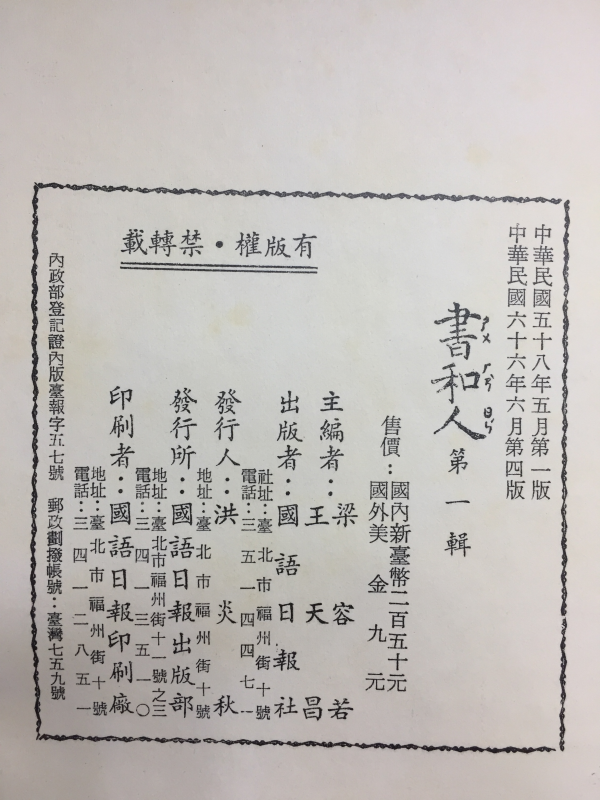 中華民國五十八年五月第一版
中華民國六十六年六月第四版
書和人 第一輯
ㄕㄨ ㄏㄢˋ ㄖㄣˊ
售價：國內新臺幣二百五十元
國外美金九元
主編者：梁容若
王天昌
出版者：國語日報社
社址：臺北市福州街十號
電話：三五一四四七一
發行人：洪炎秋
地址：臺北市福州街十號
發行所：國語日報出版部
地址：臺北市福州街十一號之三
電話：三四一三五一〇
印刷者：國語日報印刷廠
地址：臺北市福州街十號
電話：三四一二八五一
有版權・禁轉載
內政部登記證內版臺報字五七號 郵政劃撥帳號：臺灣七五九號